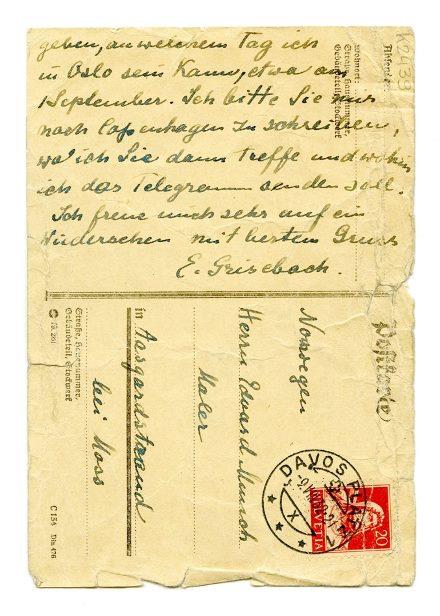 geben, an welchem Tag ich
in Oslo sein kann, etwa am
1 September. Ich bitte Sie nur
nach Copenhagen zu schreiben,
wo ich Sie dann treffe und wohin
ich das Telegramm senden soll.
Ich freue mich sehr auf ein
Wiedersehen mit bestem Gruss
E. Grisebach.
Absender:
Wohnort:
Straße, Hausnummer,
Gebäudeteil, Stockwerk
K2439
Postkarte
Norwegen
Herrn Edvard Munch
Maler
in Aasgardstrand
bei Moss
Straße, Hausnummer,
Gebäudeteil, Stockwerk
C 154 Din 476
DAVOS PLATZ
X
HELVETIA
20